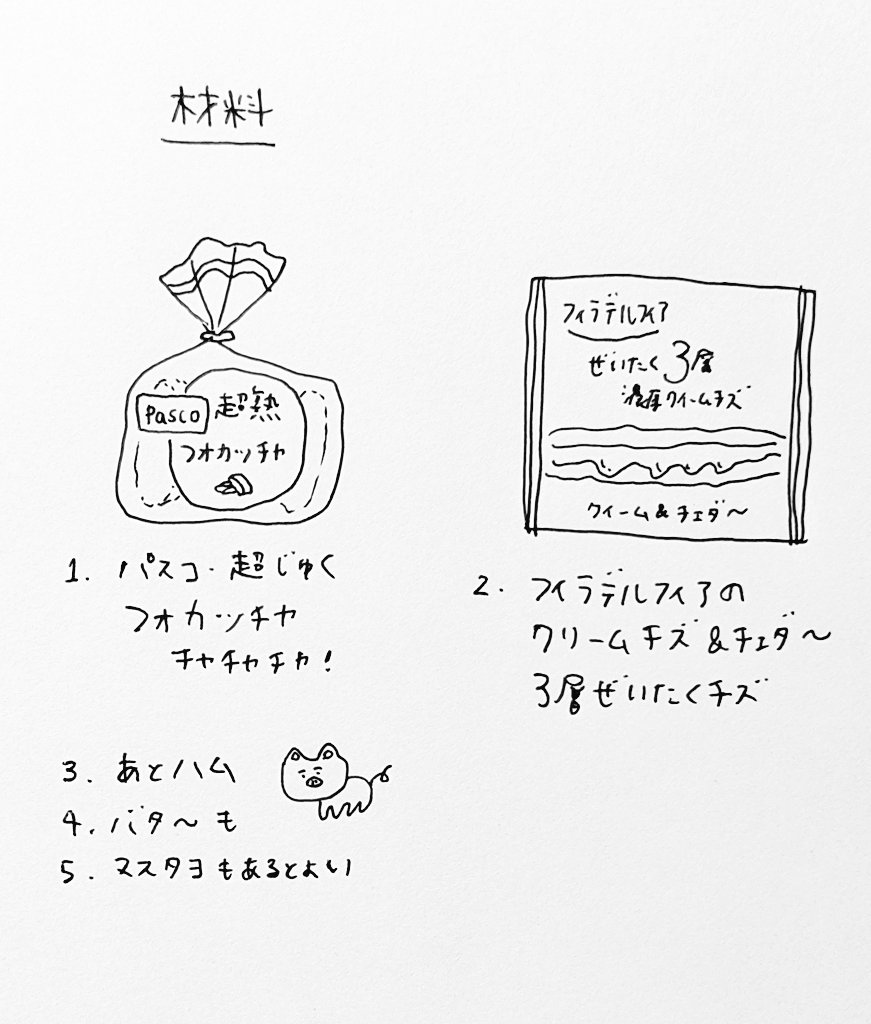 材料
Pasco 超熟
フォカッチャ
1. パスコ・超じゅく
フォカッチャ
チャチャチャ!
フィラデルフィア
ぜいたく3層
濃厚クリームチズ
クリーム&チェダ〜
2. フィラデルフィアの
クリームチズ&チェダ〜
3層ぜいたくチズ
3. あとハム
4. バタ〜も
5. マスタヨもあるとよい